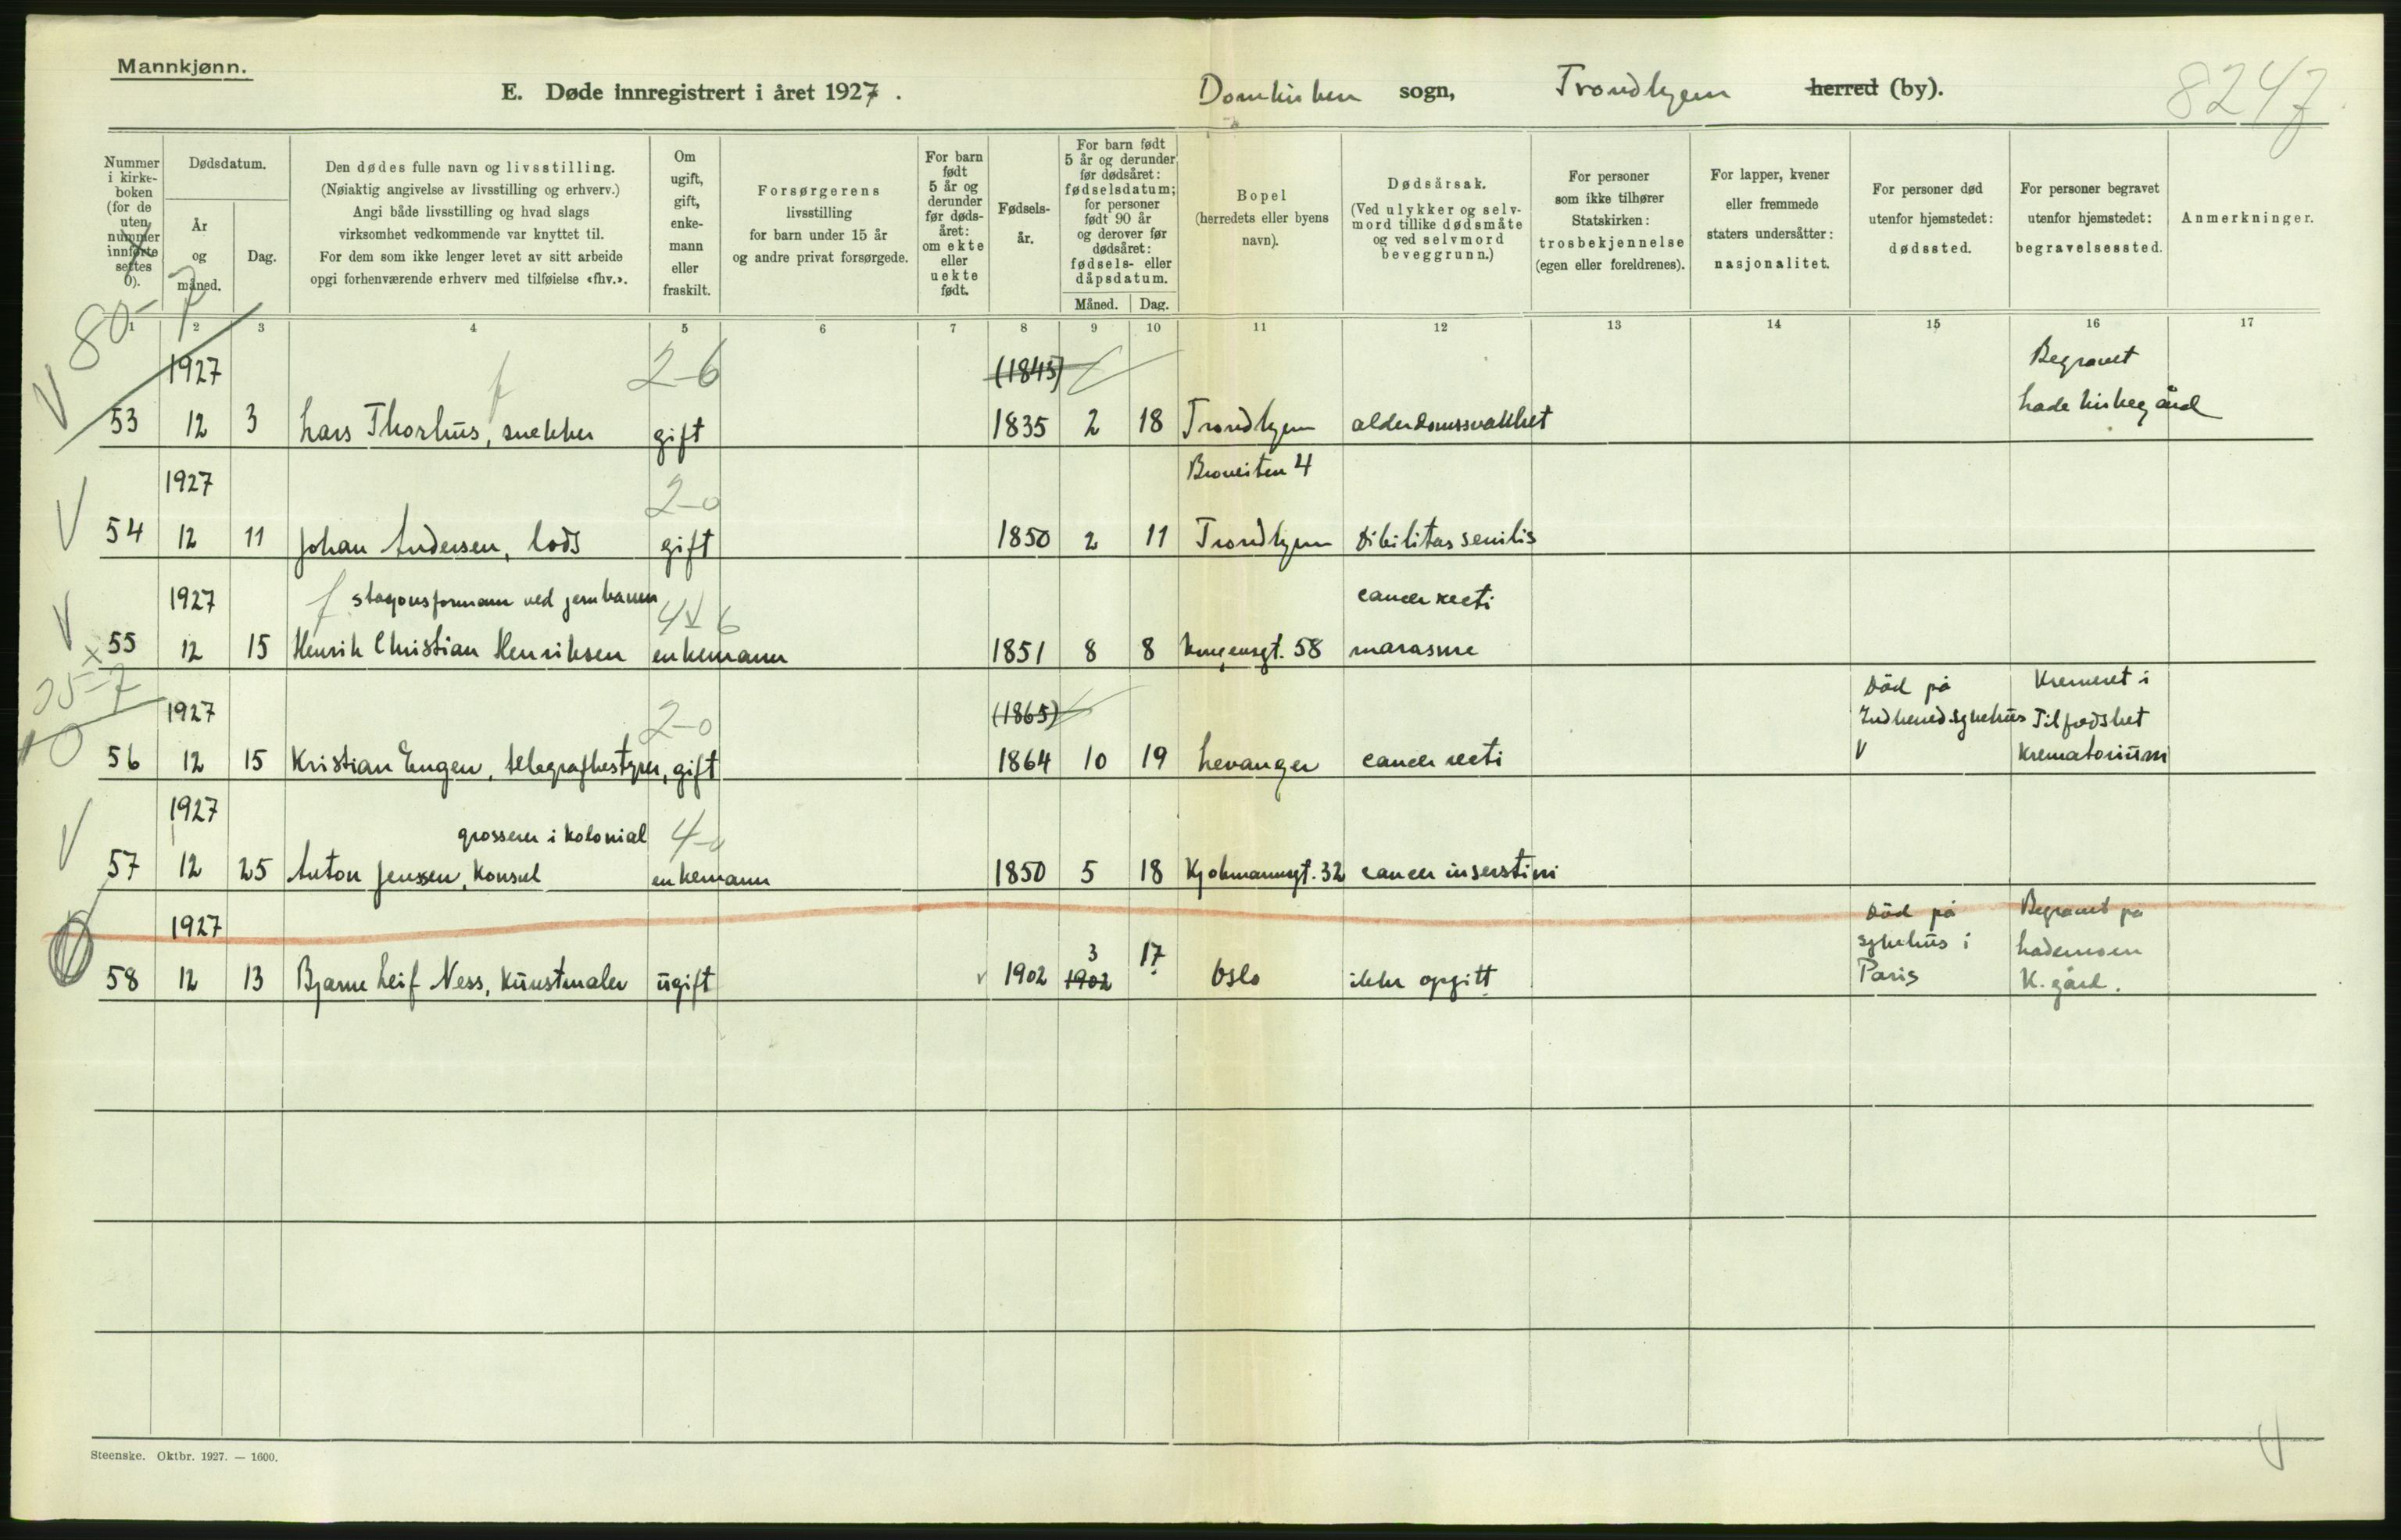 Mannkjønn.
E. Døde innregistrert i året 1927. Domkirken sogn, Trondhjem herred (by). 8247
Nummer i kirke-boken (for de uten nummer innførte settes 0).
Dødsdatum.
År og måned.
Dag.
Den dødes fulle navn og livsstilling.
(Nøiaktig angivelse av livsstilling og erhverv.)
Angi både livsstilling og hvad slags
virksomhet vedkommende var knyttet til.
For dem som ikke lenger levet av sitt arbeide
opgi forhenværende erhverv med tilføielse «fhv.».
Om ugift, gift, enke-mann eller fraskilt.
Forsørgerens
livsstilling
for barn under 15 år
og andre privat forsørgede.
For barn født 5 år og derunder før døds-året: om ekte eller uekte født.
Fødsels-år.
For barn født 5 år og derunder før dødsåret: fødselsdatum; for personer født 90 år og derover før dødsåret: fødsels- eller dåpsdatum.
Måned. Dag.
Bopel
(herredets eller byens
navn).
Dødsårsak.
(Ved ulykker og selv-
mord tillike dødsmåte
og ved selvmord
beveggrunn.)
For personer
som ikke tilhører
Statskirken:
trosbekjennelse
(egen eller foreldrenes).
For lapper, kvener
eller fremmede
staters undersåtter:
nasjonalitet.
For personer død
utenfor hjemstedet:
dødssted.
For personer begravet
utenfor hjemstedet:
begravelsessted.
Anmerkninger.
1 2 3 4 5 6 7 8 9 10 11 12 13 14 15 16 17
80-7
1927 f 2-6 (1845) Begravet
53 12 3 Lars Thorhus, snekker gift 1835 2 18 Trondhjem alderdomssvakhet Lade kirkegård
1927 2-0 Broveiten 4
54 12 11 Johan Andersen, lods gift 1850 2 11 Trondhjem Dibilitas senilis
1927 f stasjonsformann ved jernbanen 4 6 cancer recti
55 12 15 Henrik Christian Henriksen enkemann 1851 8 8 Kongensgt. 58 marasme
1927 2-0 (1865) Död på Indherred sykehus Kremeret i Tilfredshet
56 12 15 Kristian Engen, telegrafbestyrer, gift 1864 10 19 Levanger cancer recti V Krematorium
1927 grosserer i kolonial 4-0
57 12 25 Anton Jenssen, Konsul enkemann 1850 5 18 Kjøbmannsgt. 32 cancer
1927 Död på sykehus i Begravet på Lademoen
58 12 13 Bjarne Leif Ness, Kunstmaler ugift v 1902 1902 3 17 Oslo ikke opgitt Paris K. gård.
Steenske. Oktbr. 1927. — 1600.